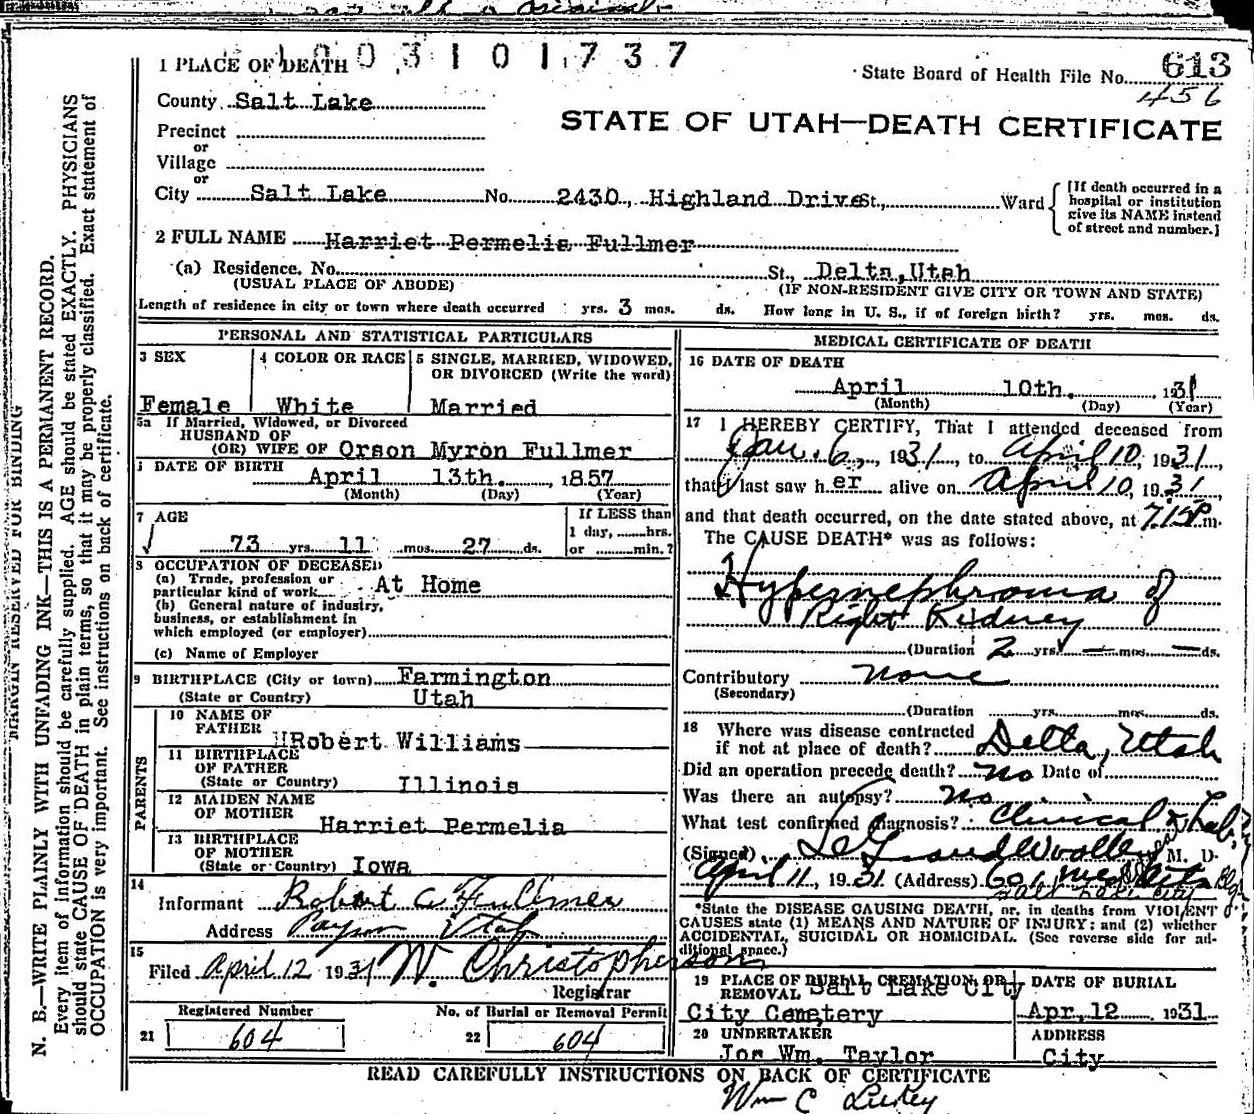 003101737
1 PLACE OF DEATH
State Board of Health File No. 613
456
County Salt Lake
STATE OF UTAH—DEATH CERTIFICATE
Precinct
or
Village
or
City Salt Lake No. 2430, Highland Drive St., Ward
[If death occurred in a
hospital or institution
give its NAME instead
of street and number.]
2 FULL NAME Harriet Permelia Fullmer
(a) Residence. No. St., Delta, Utah
(USUAL PLACE OF ABODE) (IF NON-RESIDENT GIVE CITY OR TOWN AND STATE)
Length of residence in city or town where death occurred yrs. 3 mos. ds. How long in U. S., if of foreign birth? yrs. mos. ds.
PERSONAL AND STATISTICAL PARTICULARS
3 SEX
Female
4 COLOR OR RACE
White
5 SINGLE, MARRIED, WIDOWED,
OR DIVORCED (Write the word)
Married
5a If Married, Widowed, or Divorced
HUSBAND OF
(OR) WIFE OF Orson Myron Fullmer
DATE OF BIRTH
April 13th. , 1857
(Month) (Day) (Year)
7 AGE
73 yrs. 11 mos. 27 ds.
If LESS than
1 day, hrs.
or min.?
8 OCCUPATION OF DECEASED
(a) Trade, profession or
particular kind of work At Home
(b) General nature of industry,
business, or establishment in
which employed (or employer)
(c) Name of Employer
9 BIRTHPLACE (City or town) Farmington
(State or Country) Utah
PARENTS
10 NAME OF
FATHER Robert Williams
11 BIRTHPLACE
OF FATHER
(State or Country) Illinois
12 MAIDEN NAME
OF MOTHER Harriet Permelia
13 BIRTHPLACE
OF MOTHER
(State or Country) Iowa
14
Informant Robert C Fullmer
Address Payson Utah
15
Filed April 12 1931 W. Christopherson
Registrar
Registered Number
21 604
No. of Burial or Removal Permit
22 604
MEDICAL CERTIFICATE OF DEATH
16 DATE OF DEATH
April 10th. , 1931
(Month) (Day) (Year)
17 I HEREBY CERTIFY, That I attended deceased from
Jan. 6, 1931, to April 10, 1931,
that I last saw her alive on April 10, 1931
and that death occurred, on the date stated above, at 7:15P m.
The CAUSE DEATH* was as follows:
Hypernephroma of
Right Kidney
(Duration 2 yrs. — mos. — ds.
Contributory None
(Secondary)
(Duration yrs. mos. ds.
18 Where was disease contracted
if not at place of death? Delta, Utah
Did an operation precede death? No Date of
Was there an autopsy? No
What test confirmed diagnosis? Clinical & Lab.
(Signed) LeGrand Woolley M. D.
April 11, 1931 (Address) 601 Med Arts Bldg.
Salt Lake City
*State the DISEASE CAUSING DEATH, or, in deaths from VIOLENT
CAUSES state (1) MEANS AND NATURE OF INJURY: and (2) whether
ACCIDENTAL, SUICIDAL OR HOMICIDAL. (See reverse side for ad-
ditional space.)
19 PLACE OF BURIAL CREMATION OR
REMOVAL Salt Lake City
City Cemetery
DATE OF BURIAL
Apr. 12 1931
20 UNDERTAKER
Jos Wm. Taylor
ADDRESS
City
READ CAREFULLY INSTRUCTIONS ON BACK OF CERTIFICATE
Wm C
MARGIN RESERVED FOR BINDING
N. B.—WRITE PLAINLY WITH UNFADING INK—THIS IS A PERMANENT RECORD.
Every item of information should be carefully supplied. AGE should be stated EXACTLY. PHYSICIANS
should state CAUSE OF DEATH in plain terms, so that it may be properly classified. Exact statement of
OCCUPATION is very important. See instructions on back of certificate.